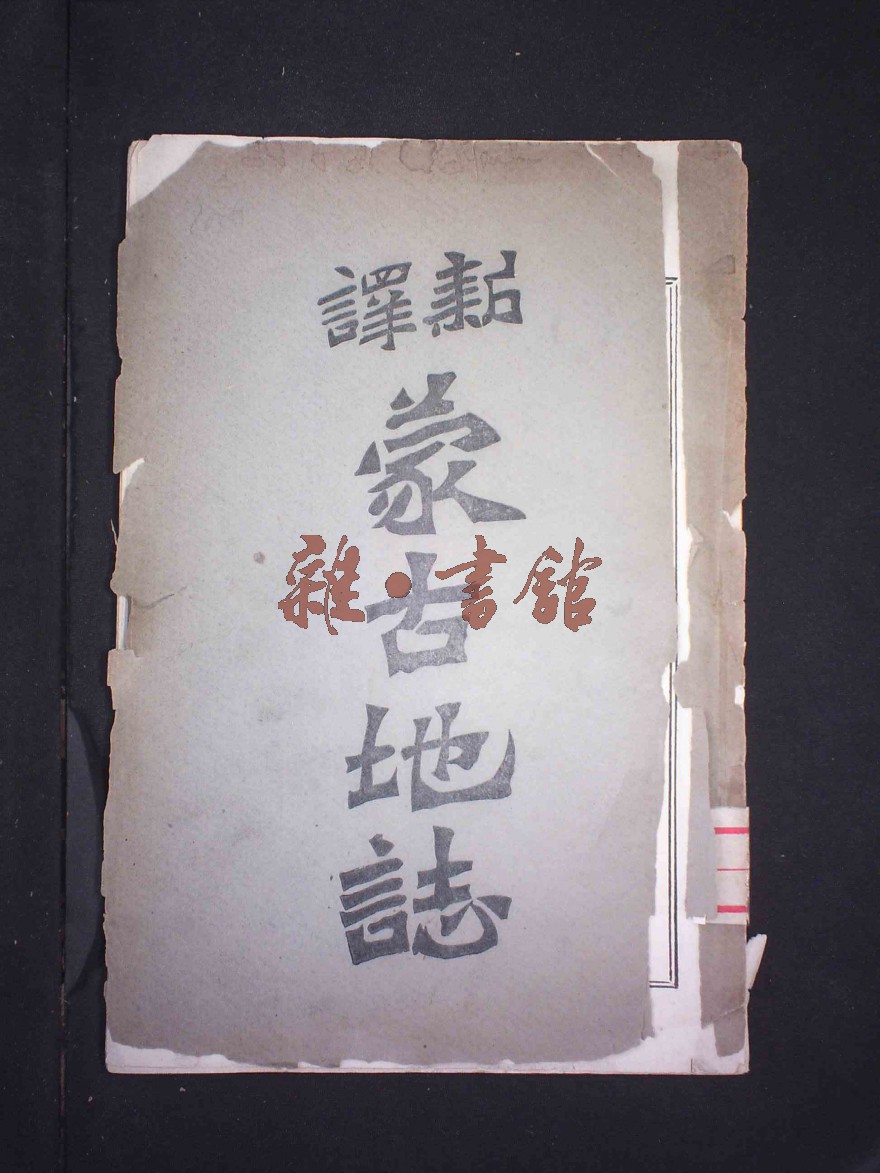 新譯
蒙古地誌
雜·書館